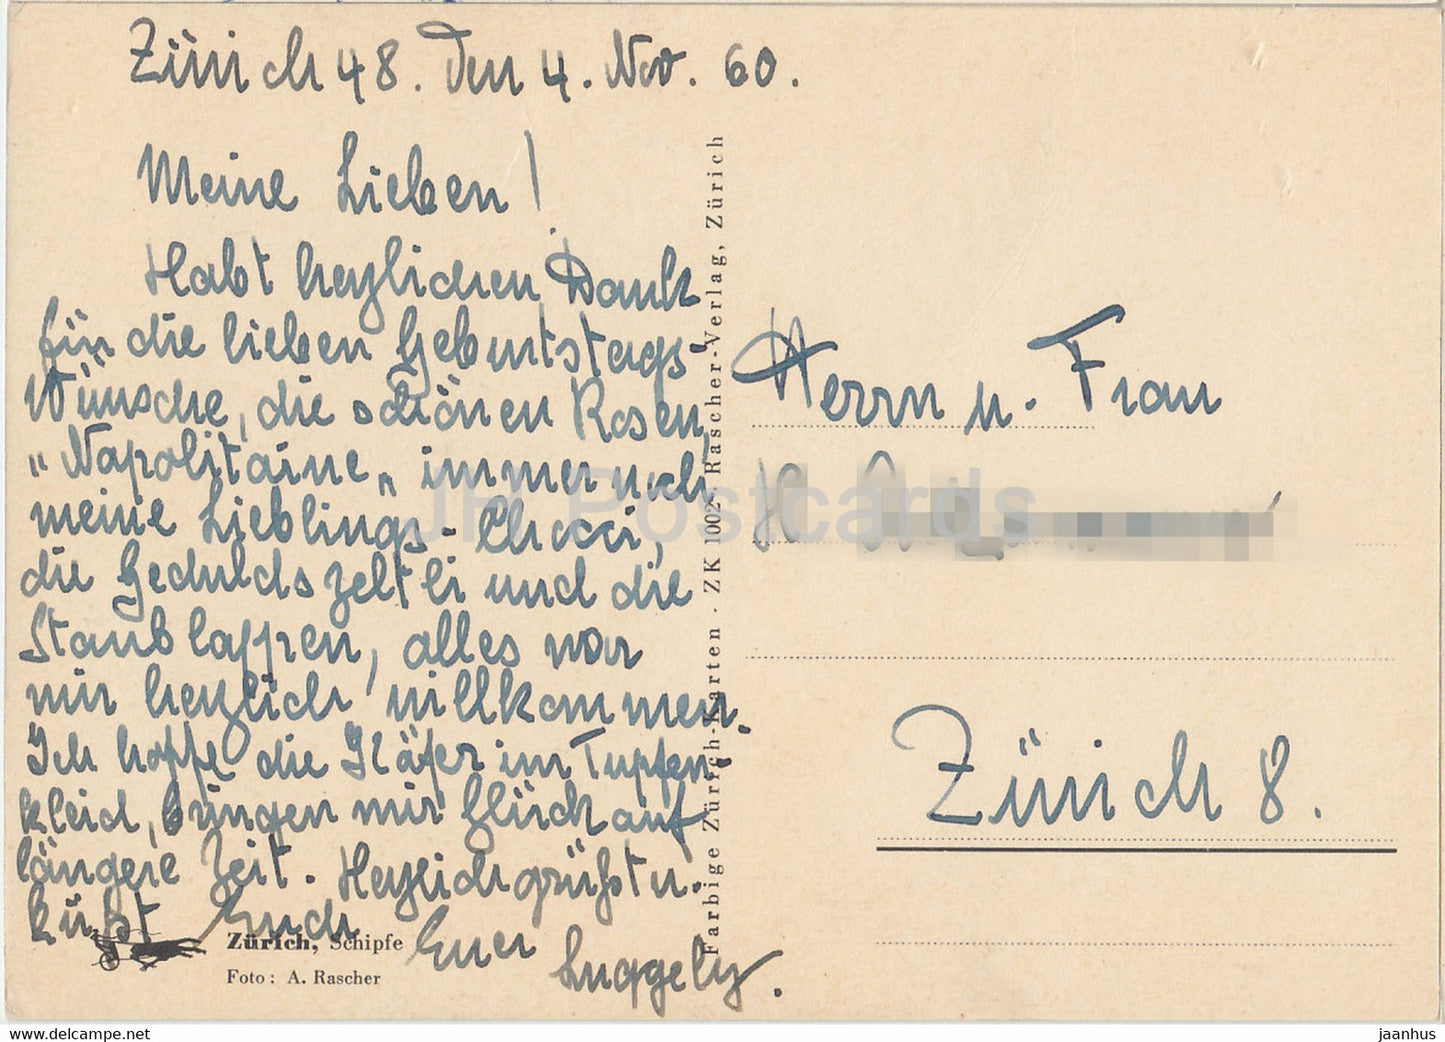 Zürich 48. Den 4. Nov. 60.
Meine Lieben!
Habt herzlichen Dank
für die lieben Geburtstags-
Wünsche, die schönen Rosen,
"Napolitaine" immer noch
meine Lieblings-Chocci,
die Geduldszeltli und die
Staublappen, alles war
mir herzlich willkommen.
Ich hoffe die Käfer im Tupfen-
kleid, bringen mir Glück auf
längere Zeit. Herzlich grüsst u.
küsst Euch
Euer Luggely.
Zürich, Schipfe
Foto: A. Rascher
Farbige Zürich-Karten · ZK 1002 · Rascher-Verlag, Zürich
Herrn u. Frau
H.
Zürich 8.
JH Postcards
jaanhus